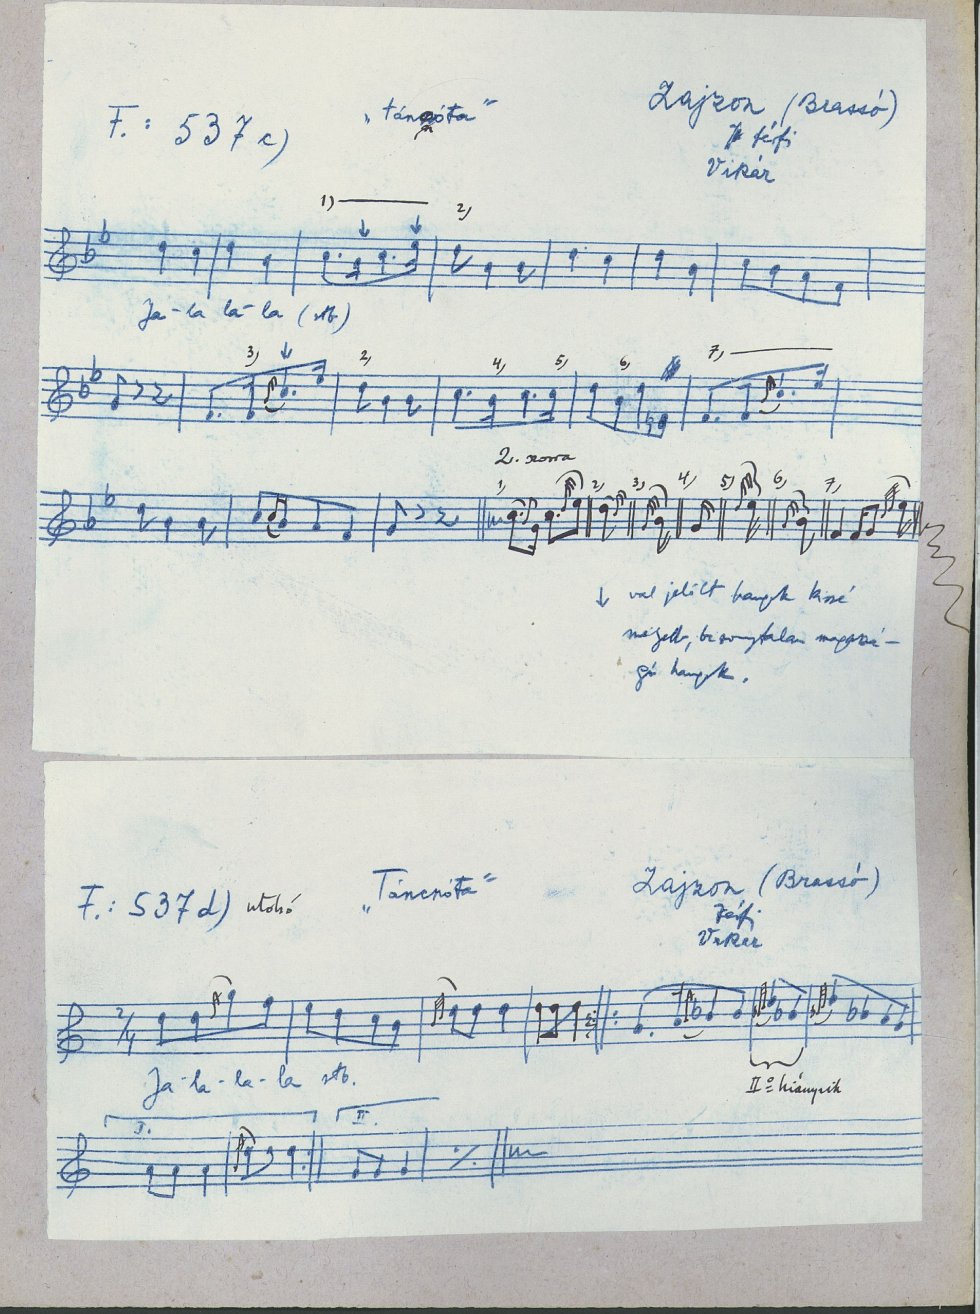 F.: 537c)
„táncnóta"
Zajzon (Brassó)
férfi
Vikár
1)
2,
Ja-la la-la (stb)
3,
2,
4,
5,
6,
7,
2. strofa
1,
2,
3,
4,
5,
6,
7,
↓ val jelölt hangok kissé
mélyebb, bizonytalan magassá-
gú hangok.
F.: 537d) utolsó
„Táncnóta"
Zajzon (Brassó)
férfi
Vikár
2/4
Ja-la-la-la stb.
II° hiányzik
I.
II.